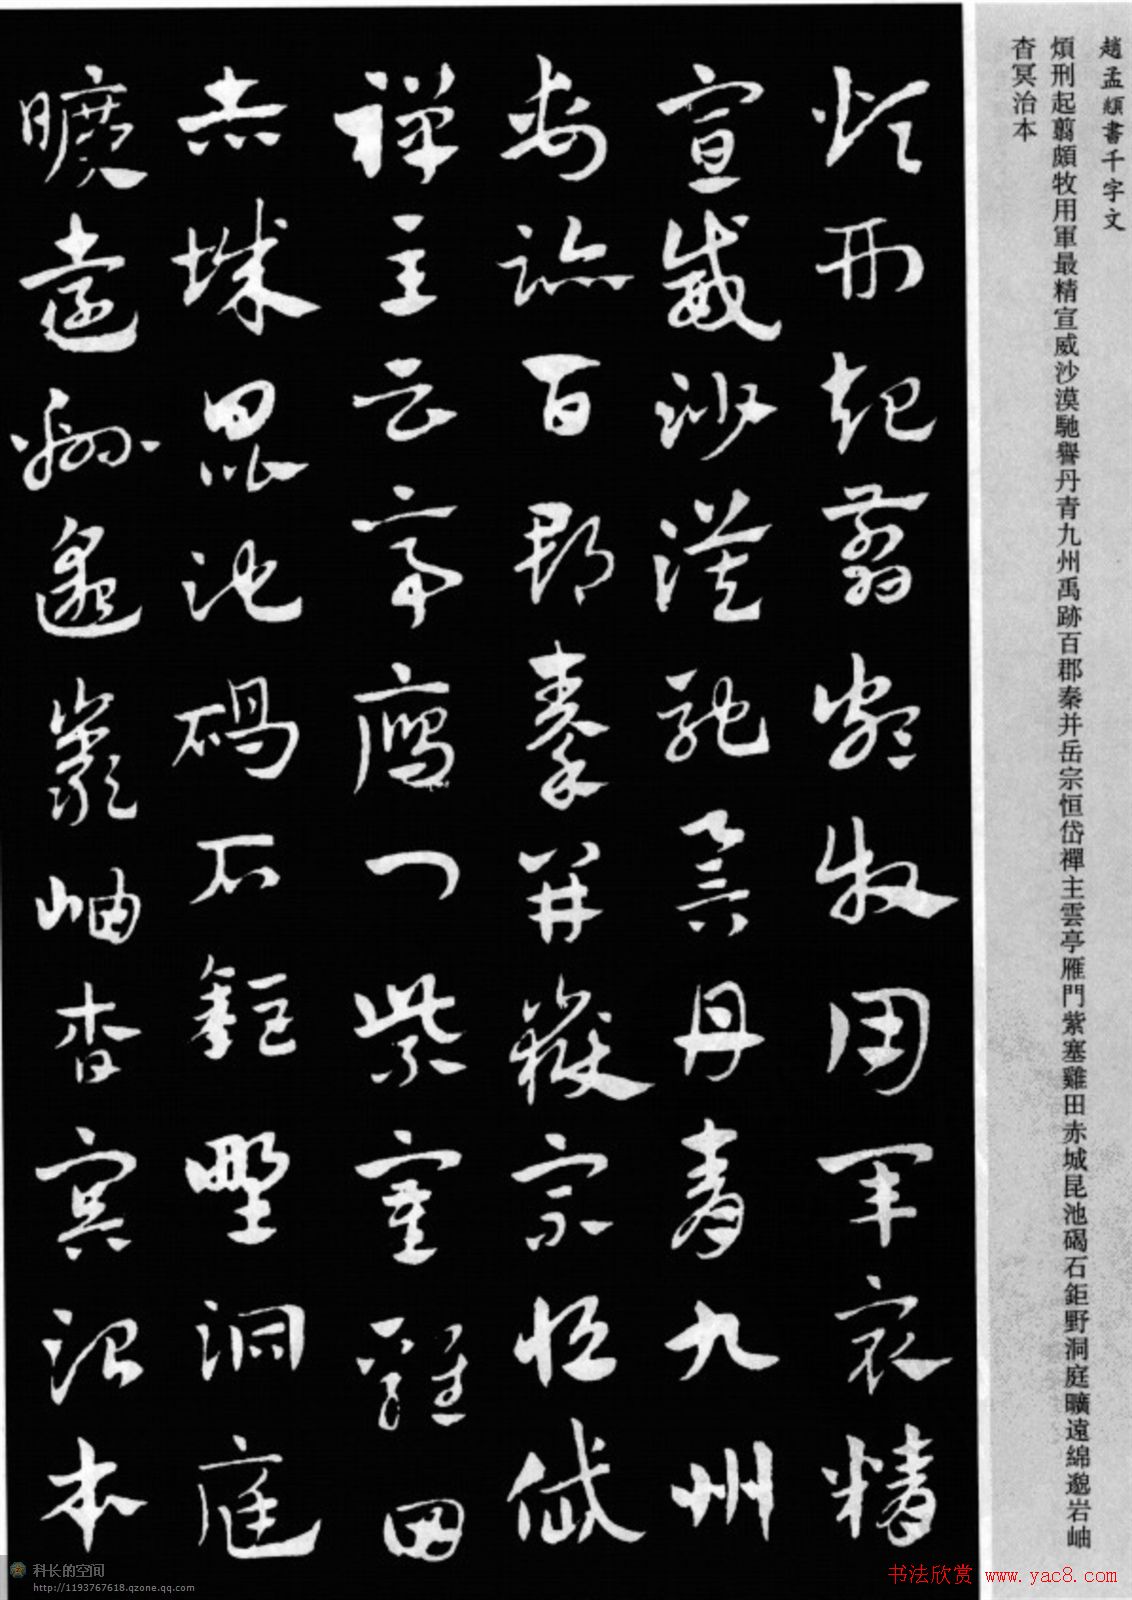 趙孟頫書千字文
煩刑起翦頗牧用軍最精宣威沙漠馳譽丹青九州禹跡百郡秦并岳宗恒岱禪主雲亭雁門紫塞雞田赤城昆池碣石鉅野洞庭曠遠綿邈岩岫
杳冥治本
煩刑起翦頗牧用軍最精
宣威沙漠馳譽丹青九州
禹跡百郡秦并嶽宗恒岱
禪主云亭雁門紫塞雞田
赤城昆池碣石鉅野洞庭
曠遠綿邈巖岫杳冥治本
科长的空间
http://1193767618.qzone.qq.com
书法欣赏 www.yac8.com